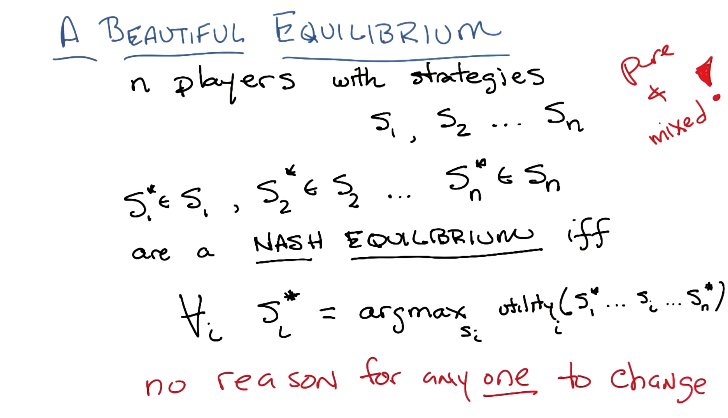 A BEAUTIFUL EQUILIBRIUM
n players with strategies
S₁, S₂ ... Sₙ
pure
&
mixed!
S₁* ∈ S₁, S₂* ∈ S₂ ... Sₙ* ∈ Sₙ
are a NASH EQUILIBRIUM iff
∀ᵢ Sᵢ* = argmax_{sᵢ} utilityᵢ(S₁* ... sᵢ ... Sₙ*)
no reason for any one to change